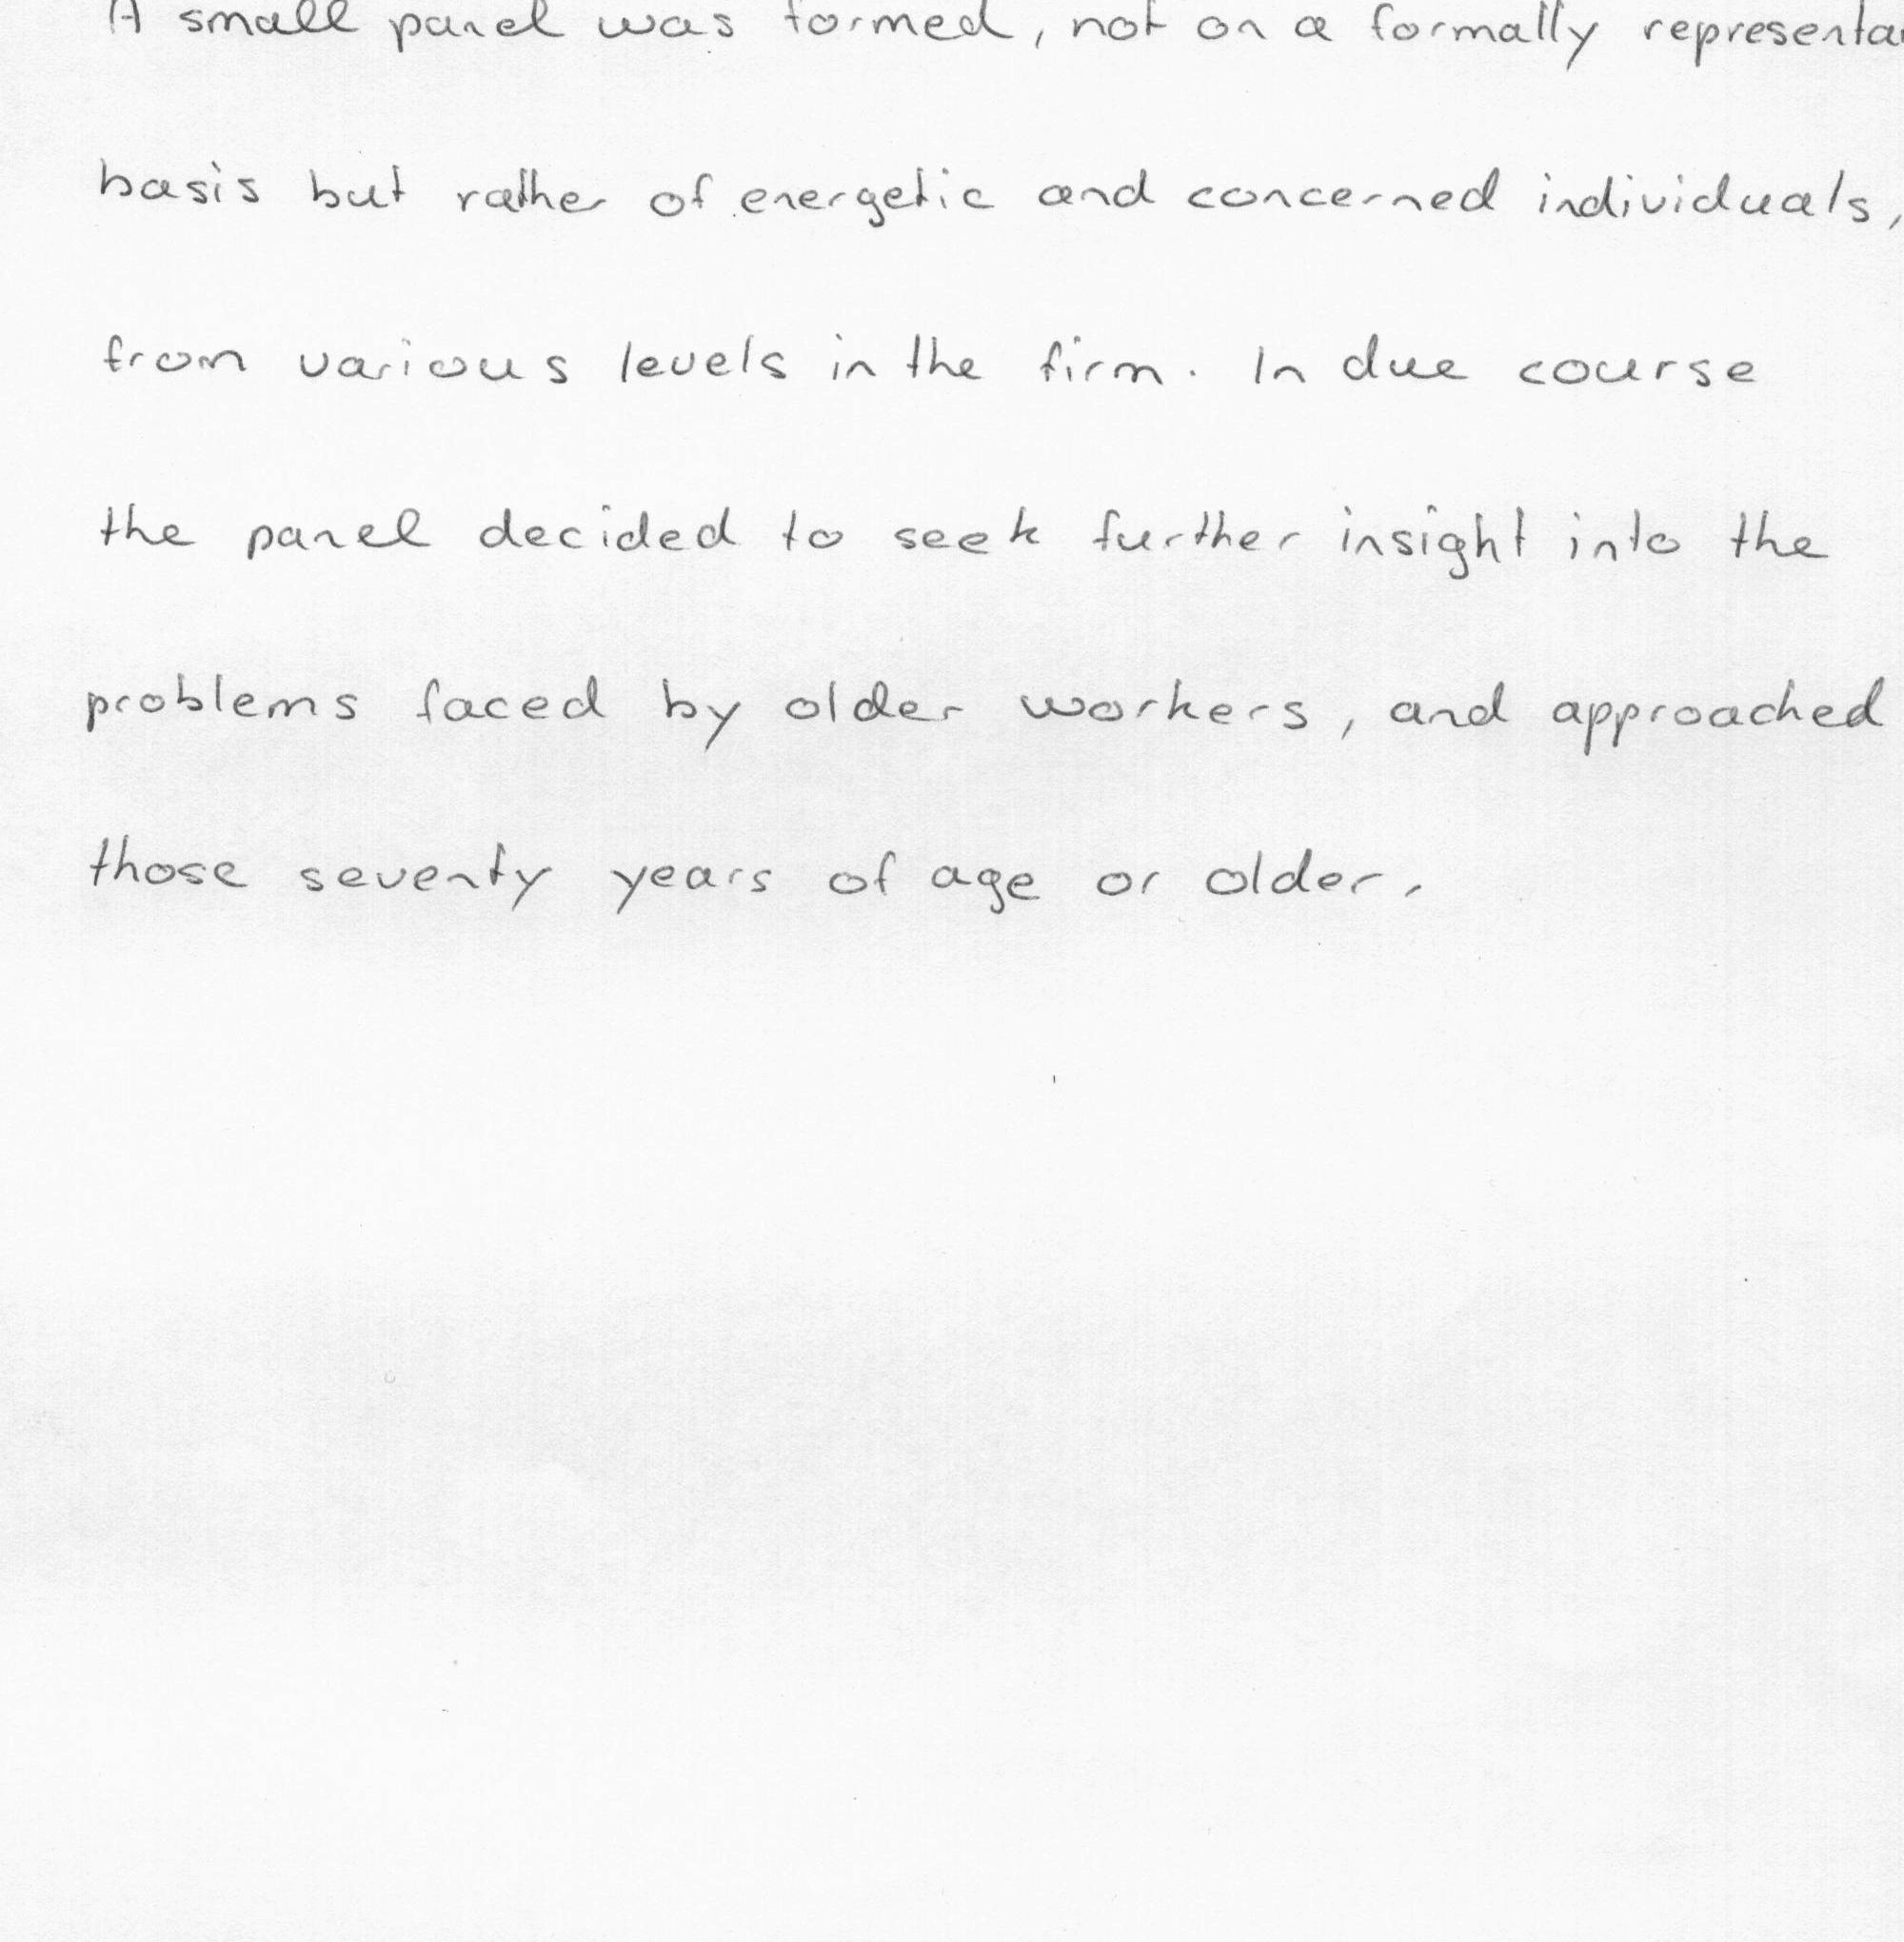 A small panel was formed, not on a formally
basis but rather of energetic and concerned individuals,
from various levels in the firm. In due course
the panel decided to seek further insight into the
problems faced by older workers, and approached
those seventy years of age or older.